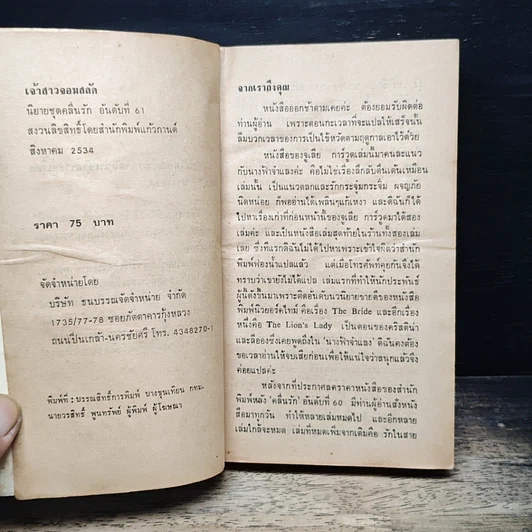 เจ้าสาวจอมสลัด
นิยายชุดคลื่นรัก อันดับที่ 61
สงวนลิขสิทธิ์โดยสำนักพิมพ์แก้วกานต์
สิงหาคม 2534
ราคา 75 บาท
จัดจำหน่ายโดย
บริษัท ธนบรรณจัดจำหน่าย จำกัด
1735/77-78 ซอยภัตตาคารกุ้งหลวง
ถนนปิ่นเกล้า-นครชัยศรี โทร. 4348270-1
พิมพ์ที่ : บรรณสิทธิ์การพิมพ์ บางขุนเทียน กทม.
นายวรสิทธิ์ พูนทรัพย์ ผู้พิมพ์ ผู้โฆษณา
จากเราถึงคุณ
หนังสือออกช้าตามเคยค่ะ ต้องยอมรับผิดต่อ
ท่านผู้อ่าน เพราะตอนกะเวลาที่จะแปลให้เสร็จนั้น
ลืมบวกเวลาของการเป็นไข้หวัดตามฤดูกาลเอาไว้ด้วย
หนังสือของจูเลีย การ์วูดเล่มนี้มาคนละแนว
กับนางฟ้าจำแลงค่ะ คือไม่ใช่เรื่องลึกลับตื่นเต้นเหมือน
เล่มนั้น เป็นแนวตลกและรักกระจุ๋มกระจิ๋ม ผจญภัย
นิดหน่อย ก็พออ่านได้เพลินๆแก้เหงา และดิฉันก็ได้
ไปหาเรื่องเก่าที่ก่อนหน้านี้ของจูเลีย การ์วูดมาได้สอง
เล่มค่ะ และเป็นหนังสือเล่มสุดท้ายในร้านทั้งสองเล่ม
เลย ซึ่งที่แรกดิฉันไม่ได้ไปหาเพราะเข้าใจคิดว่าสำนัก
พิมพ์ฟองน้ำแปลแล้ว แต่เมื่อโทรศัพท์คุยกันจึงได้
ทราบว่าเขายังไม่ได้แปล เล่มแรกที่ทำให้นักประพันธ์
ผู้นี้ดังขึ้นมาเพราะติดอันดับวนิยายขายดีของหนังสือ
พิมพ์นิวยอร์คไทม์ คือเรื่อง The Bride และอีกเรื่อง
หนึ่งคือ The Lion's Lady เป็นตอนของคริสติน่า
และลีออง ซึ่งเคยพูดถึงใน 'นางฟ้าจำแลง' ดิฉันคงต้อง
ขอเวลาอ่านให้จบเสียก่อนเพื่อให้แน่ใจว่าสนุกแล้วจึง
ค่อยแปลค่ะ
หลังจากที่ประกาศลดราคาหนังสือของสำนัก
พิมพ์หลัง 'คลื่นรัก' อันดับที่ 60 มีท่านผู้อ่านสั่งหนัง
สือมาทุกวัน ทำให้หลายเล่มหมดไป และอีกหลาย
เล่มใกล้จะหมด เล่มที่หมดเพิ่มจากเดิมคือ รักในสาย